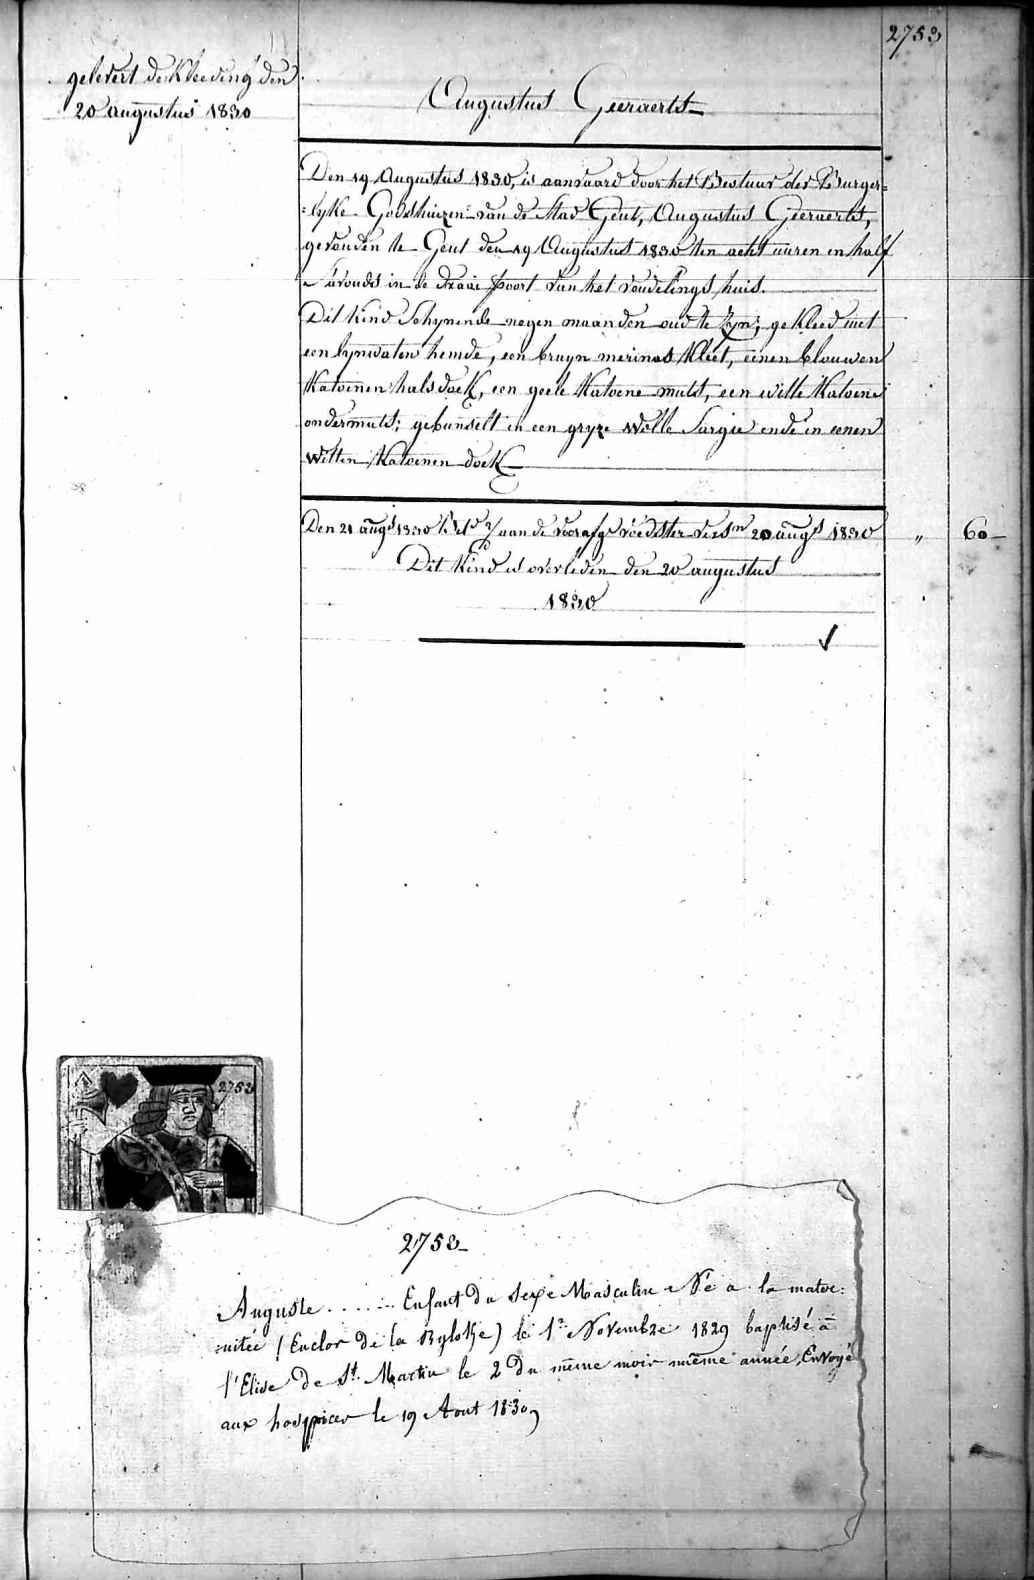 2753
gelevert de Kleeding den
20 augustus 1830
Augustus Geeraerts
Den 19 Augustus 1830, is aanvaard door het Bestuur der Burger=
=lyke Godshuizen van de Stad Gent, Augustus Geeraerts,
gevonden te Gent den 19 Augustus 1830 ten acht uuren en half
's avonds in de draai poort van het vondelings huis.
Dit kind Schynende negen maanden oud te Zyn; gekleed met
een lynwaten hemde, een bruyn merinos Kleet, eenen blauwen
Katoenen halsdoek, een geele Katoene muts, een witte Katoene
ondermuts; gebunselt in een gryze Wolle Sargie ende in eenen
Witten Katoenen doek
Den 21 augs 1830 aan de voedster 20 augs 1830 „ 60
Dit Kind is overleden den 20 augustus
1830
2753
2753
Auguste ....... Enfant du Sexe Masculin Né a la mater:
:nitée (Enclos de la Byloke) le 1r Novembre 1829 baptisé a
l'Elise de St. Martin le 2 du même mois même année, Envoyé
aux hospices le 19 Aout 1830,